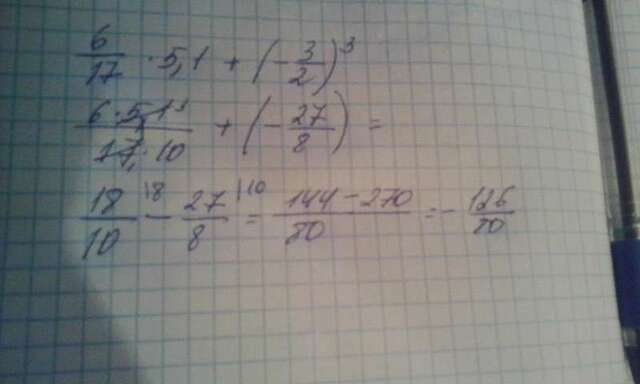 6/17 · 5,1 + (-3/2)^3
6·51^3/17·10 + (-27/8) =
18/10|8 - 27/8|10 = 144-270/80 = -126/80